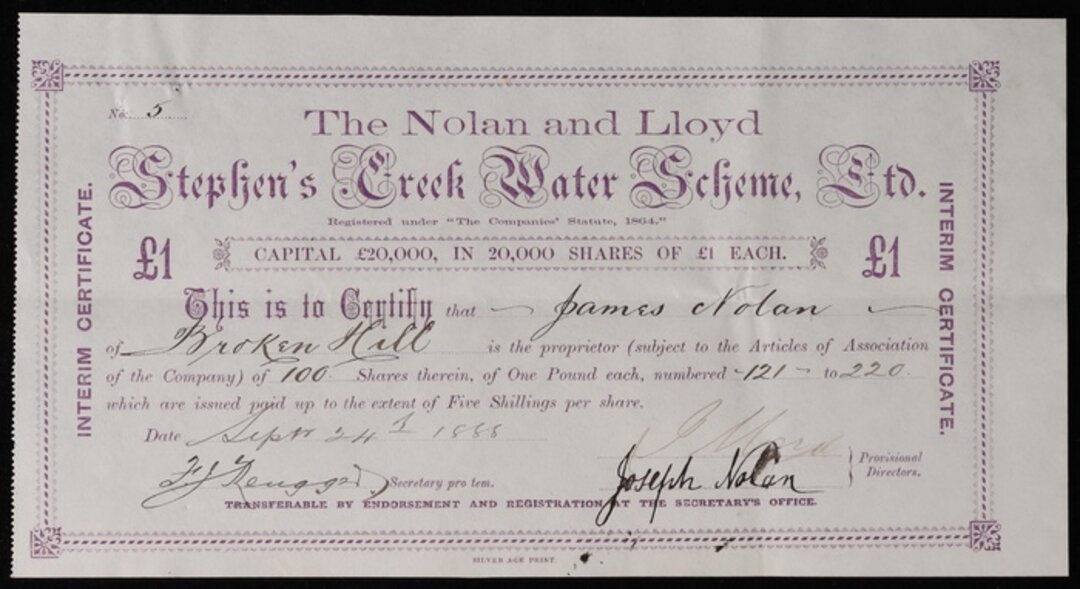 No. 5
The Nolan and Lloyd
Stephen's Creek Water Scheme, Ltd.
Registered under "The Companies' Statute, 1864."
£1 CAPITAL £20,000, IN 20,000 SHARES OF £1 EACH. £1
INTERIM CERTIFICATE.
INTERIM CERTIFICATE.
This is to Certify that James Nolan
of Broken Hill is the proprietor (subject to the Articles of Association
of the Company) of 100 Shares therein, of One Pound each, numbered 121 to 220
which are issued paid up to the extent of Five Shillings per share.
Date Sept 24 1888
Secretary pro tem. Joseph Nolan Provisional Directors.
TRANSFERABLE BY ENDORSEMENT AND REGISTRATION AT THE SECRETARY'S OFFICE.
SILVER AGE PRINT.